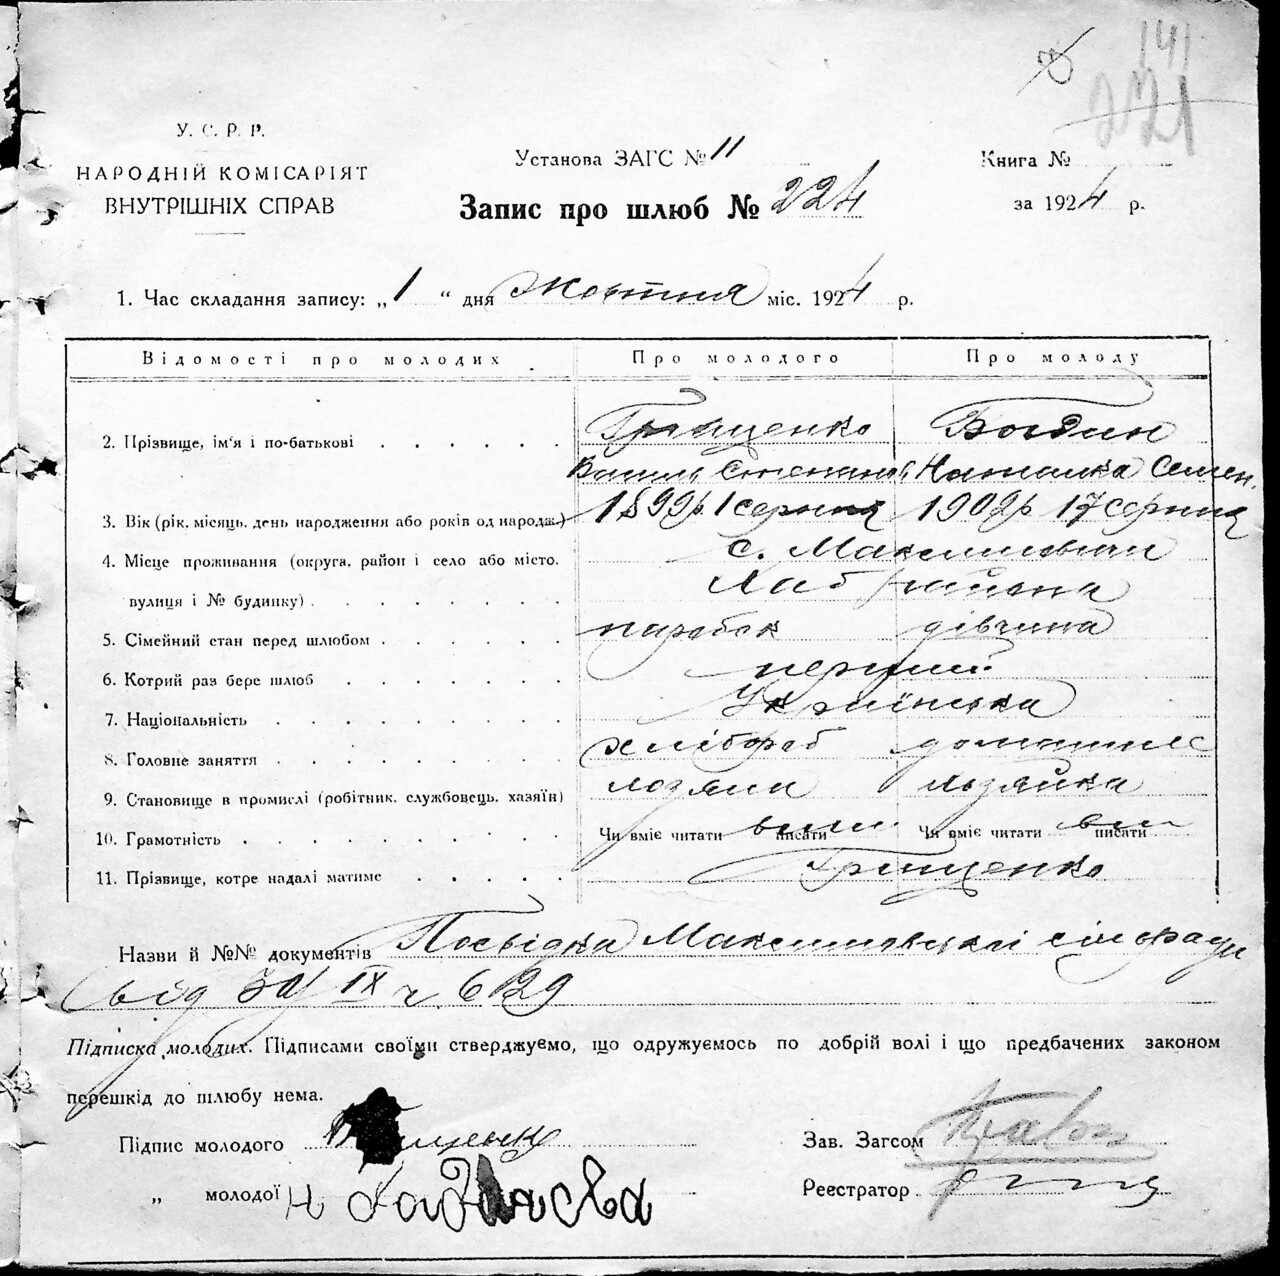 141
221
У. С. Р. Р.
НАРОДНІЙ КОМІСАРІЯТ
ВНУТРІШНІХ СПРАВ
Установа ЗАГС № 11
Запис про шлюб № 224
Книга №
за 1924 р.
1. Час складання запису: „1" дня жовтня міс. 1924 р.
Відомості про молодих Про молодого Про молоду
2. Прізвище, ім'я і по-батькові Грищенко Богдан
Василь Степанов. Наталка Семен.
3. Вік (рік, місяць, день народження або років од народж.) 1899р. 1 серпня 1902р 17 серпня
4. Місце проживання (округа, район і село або місто, с. Максимовичи
вулиця і № будинку) району
5. Сімейний стан перед шлюбом парубок дівчина
6. Котрий раз бере шлюб перший
7. Національність Українська
8. Головне заняття хлібороб домашнє
9. Становище в промислі (робітник, службовець, хазяїн)
10. Грамотність Чи вміє читати писати Чи вміє читати писати
11. Прізвище, котре надалі матиме Грищенко
Назви й №№ документів Посвідка Максимовської сільради
від 30/IX ч 629
Підписка молодих. Підписами своїми стверджуємо, що одружуємось по добрій волі і що предбачених законом
перешкід до шлюбу нема.
Підпис молодого
Зав. Загсом
„ молодої Н
Реєстратор